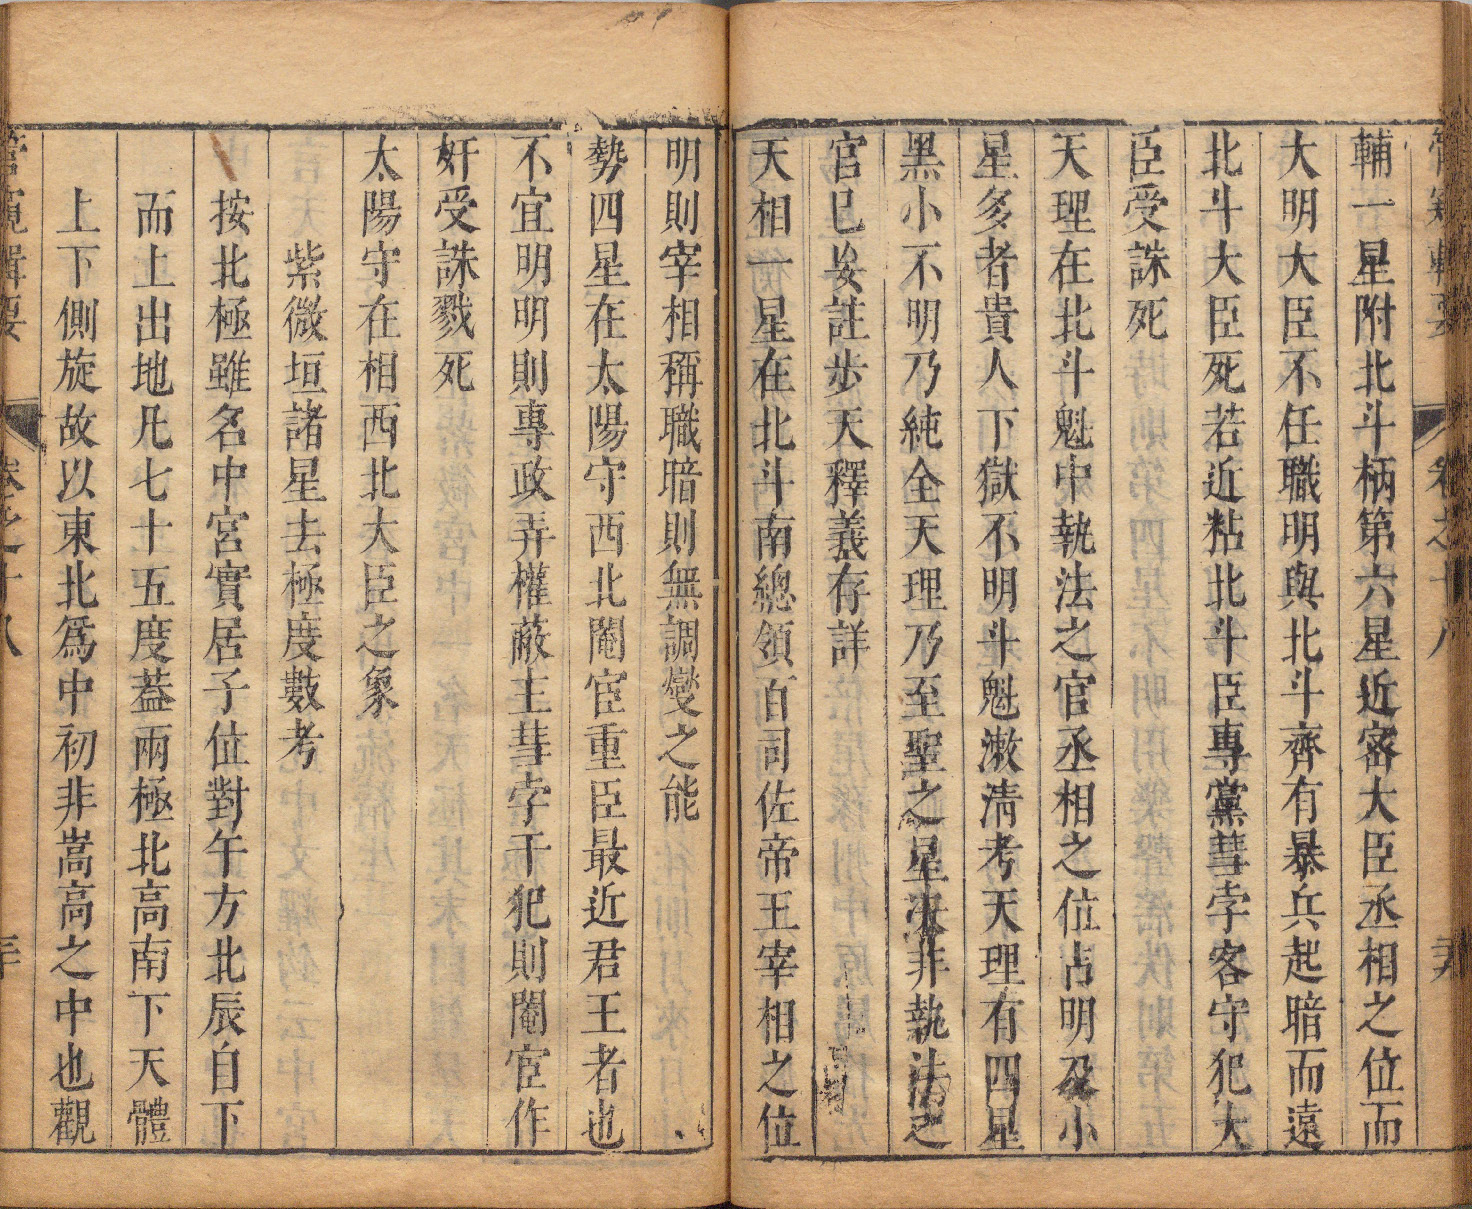 管窺輯要 卷之十八
輔一星附北斗柄第六星近密大臣丞相之位而
大明大臣不任職明與北斗齊有暴兵起暗而遠
北斗大臣死若近粘北斗臣專黨彗孛客守犯大
臣受誅死
天理在北斗魁中執法之官丞相之位占明及小
星多者貴人下獄不明斗魁漱淸考天理有四星
黑小不明乃純全天理乃至聖之星決非執法之
官巳妄註步天釋義存詳
天相一星在北斗南總領百司佐帝王宰相之位
明則宰相稱職暗則無調燮之能
勢四星在太陽守西北閹宦重臣最近君王者也
不宜明明則專政弄權蔽主彗孛干犯則閹宦作
奸受誅戮死
太陽守在相西北大臣之象
紫微垣諸星去極度數考
按北極雖名中宮實居子位對午方北辰自下
而上出地凡七十五度葢兩極北高南下天體
上下側旋故以東北爲中初非嵩高之中也觀
管窺輯要 卷之十八